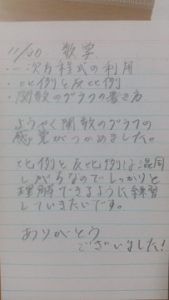 11/20 数学
・一次方程式の利用
・比例と反比例
・関数のグラフの書き方
ようやく関数のグラフの
感覚がつかめました。
比例と反比例は混同
しがちなのでしっかりと
理解できるように練習
していきたいです。
ありがとう
ございました!